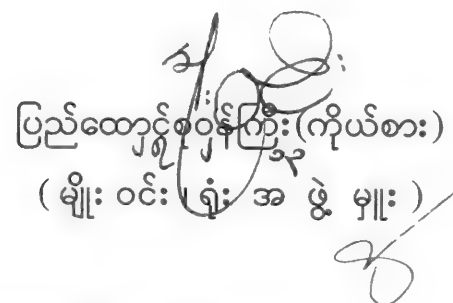 ပြည်ထောင်စုဝန်ကြီး(ကိုယ်စား)
( မျိုး ဝင်း ၊ ရုံး အ ဖွဲ့ မှူး )